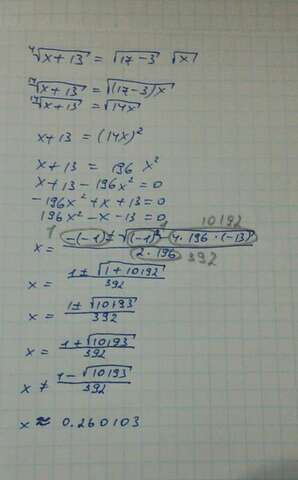 ⁴√(x+13) = √(17-3) √x
¹⁷√(x+13) = √((17-3)x)
¹⁷√(x+13) = √(14x)
x+13 = (14x)²
x+13 = 196 x²
x+13-196x²=0
-196x²+x+13=0
196x²-x-13=0
1 10192
x = (-(-1)±√((-1)²-4·196·(-13)))/(2·196) 392
x = (1±√(1+10192))/392
x = (1±√10193)/392
x = (1+√10193)/392
x ≠ (1-√10193)/392
x ≈ 0.260103